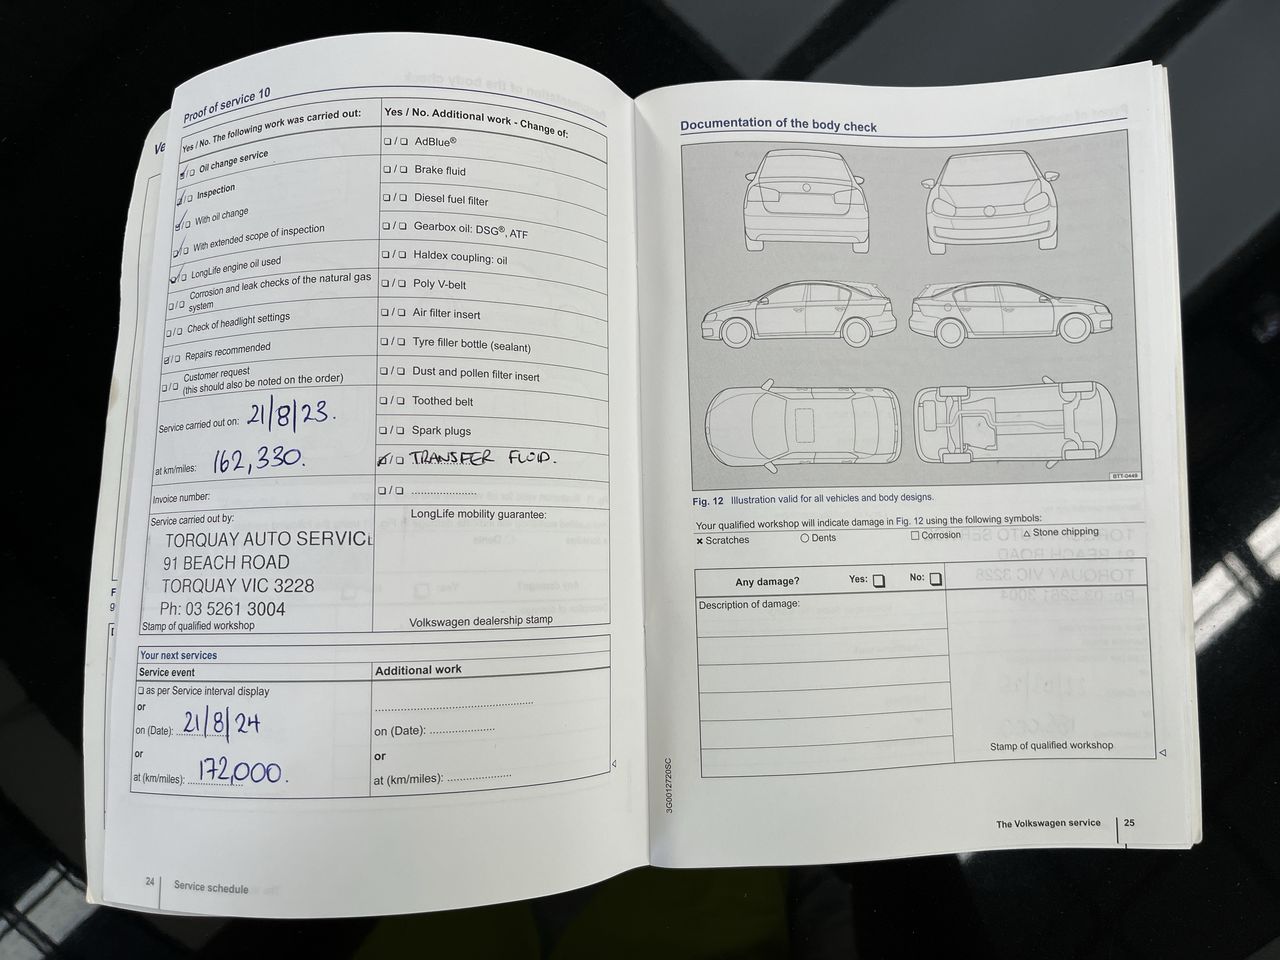 Ve
Proof of service 10
Yes / No. The following work was carried out:
Oil change service
Inspection
With oil change
With extended scope of inspection
LongLife engine oil used
Corrosion and leak checks of the natural gas
system
Check of headlight settings
Repairs recommended
Customer request
(this should also be noted on the order)
Service carried out on: 21/8/23.
at km/miles: 162,330.
Invoice number:
Service carried out by:
TORQUAY AUTO SERVIC
91 BEACH ROAD
TORQUAY VIC 3228
Ph: 03 5261 3004
Stamp of qualified workshop
Yes / No. Additional work - Change of:
AdBlue®
Brake fluid
Diesel fuel filter
Gearbox oil: DSG®, ATF
Haldex coupling: oil
Poly V-belt
Air filter insert
Tyre filler bottle (sealant)
Dust and pollen filter insert
Toothed belt
Spark plugs
TRANSFER FLUID.
LongLife mobility guarantee:
Volkswagen dealership stamp
Your next services
Service event
as per Service interval display
or
on (Date): 21/8/24
or
at (km/miles): 172,000.
Additional work
on (Date):
or
at (km/miles):
24
Service schedule
Documentation of the body check
BTT-0449
Fig. 12 Illustration valid for all vehicles and body designs.
Your qualified workshop will indicate damage in Fig. 12 using the following symbols:
× Scratches ○ Dents □ Corrosion △ Stone chipping
Any damage? Yes: No:
Description of damage:
Stamp of qualified workshop
3G0012720SC
The Volkswagen service 25